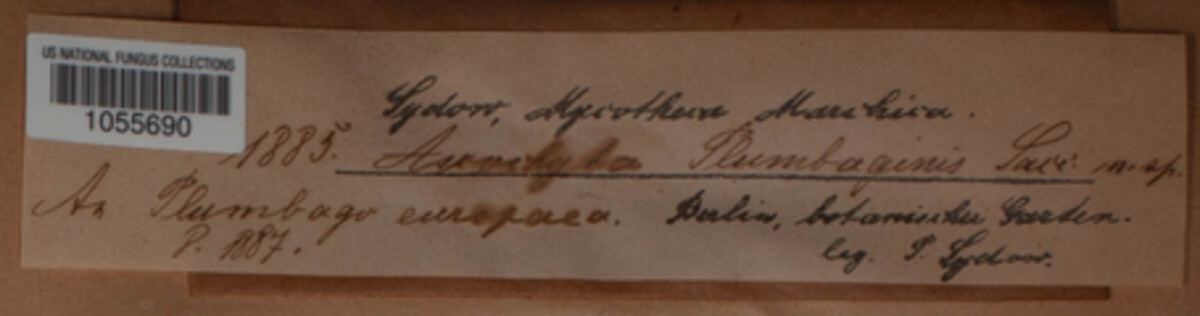 US NATIONAL FUNGUS COLLECTIONS
1055690
Sydow, Mycotheca Marchica.
1885. Ascochyta Plumbaginis Sacc. n. sp.
An Plumbago europaea. Berlin, botanischer Garten.
P. 1887.
leg. P. Sydow.